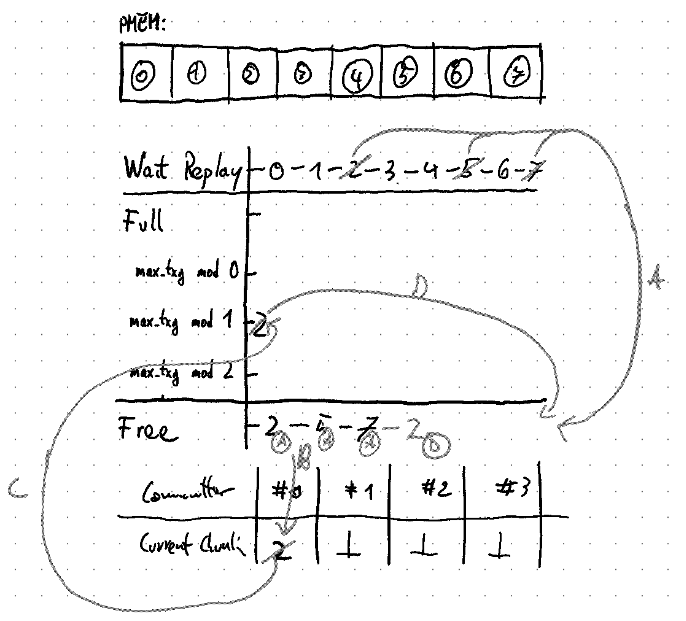 PMEM:
0 1 2 3 4 5 6 7
Wait Replay 0 - 1 - 2 - 3 - 4 - 5 - 6 - 7
Full
max_txg mod 0
D
A
max_txg mod 1 2
max_txg mod 2
Free - 2 - 5 - 7 - 2
A A A D
B
C
Committer #0 #1 #2 #3
Current Chunk 2 ⊥ ⊥ ⊥